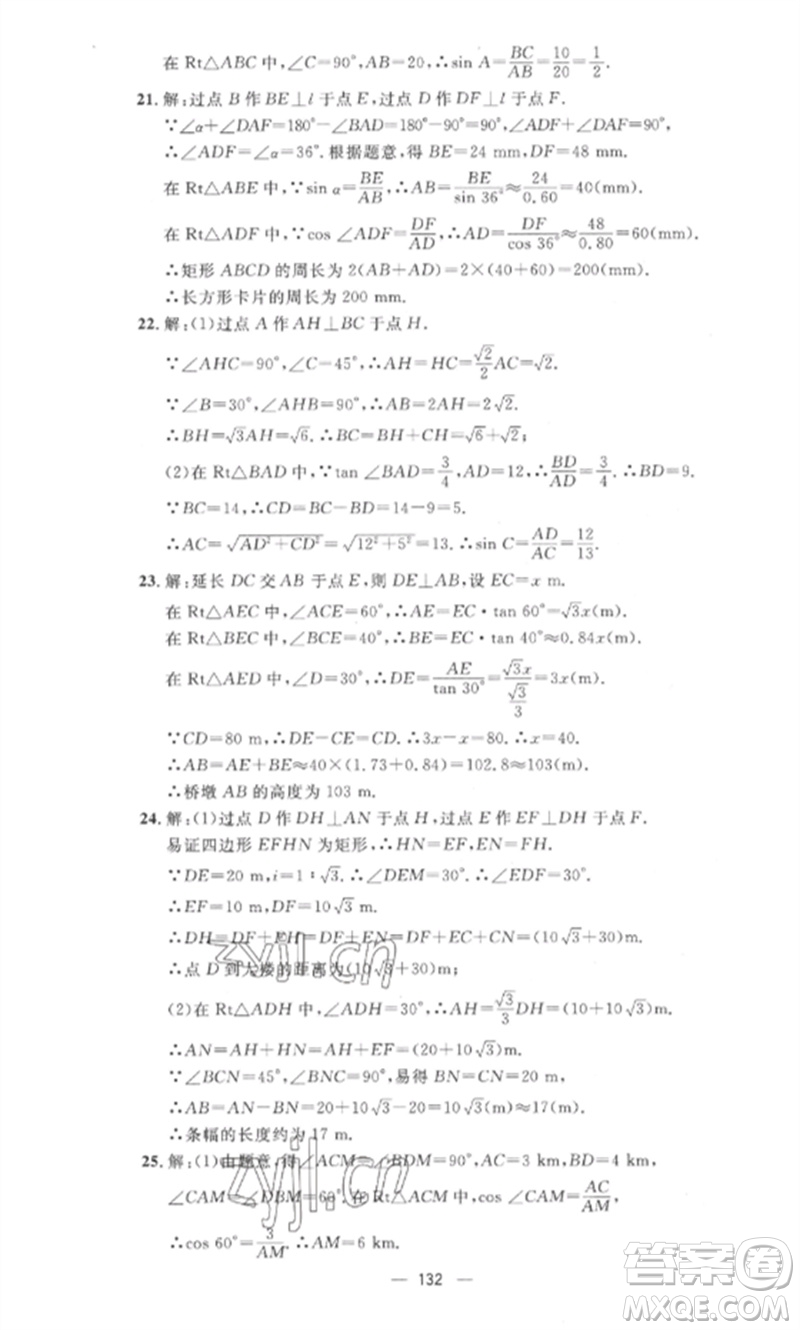 在 Rt△ABC 中,∠C=90°,AB=20,∴sin A=BC/AB=10/20=1/2.
21. 解:过点 B 作 BE⊥l 于点 E,过点 D 作 DF⊥l 于点 F.
∵∠α+∠DAF=180°-∠BAD=180°-90°=90°,∠ADF+∠DAF=90°,
∴∠ADF=∠α=36°.根据题意,得 BE=24 mm,DF=48 mm.
在 Rt△ABE 中,∵sin α=BE/AB,∴AB=BE/sin 36°≈24/0.60=40(mm).
在 Rt△ADF 中,∵cos ∠ADF=DF/AD,∴AD=DF/cos 36°≈48/0.80=60(mm).
∴矩形 ABCD 的周长为 2(AB+AD)=2×(40+60)=200(mm).
∴长方形卡片的周长为 200 mm.
22. 解:(1)过点 A 作 AH⊥BC 于点 H.
∵∠AHC=90°,∠C=45°,∴AH=HC=√2/2AC=√2.
∵∠B=30°,∠AHB=90°,∴AB=2AH=2√2.
∴BH=√3AH=√6.∴BC=BH+CH=√6+√2;
(2)在 Rt△BAD 中,∵tan ∠BAD=3/4,AD=12,∴BD/AD=3/4.∴BD=9.
∵BC=14,∴CD=BC-BD=14-9=5.
∴AC=√(AD²+CD²)=√(12²+5²)=13.∴sin C=AD/AC=12/13.
23. 解:延长 DC 交 AB 于点 E,则 DE⊥AB,设 EC=x m.
在 Rt△AEC 中,∠ACE=60°,∴AE=EC·tan 60°=√3x(m).
在 Rt△BEC 中,∠BCE=40°,∴BE=EC·tan 40°≈0.84x(m).
在 Rt△AED 中,∠D=30°,∴DE=AE/tan 30°=√3x/(√3/3)=3x(m).
∵CD=80 m,∴DE-CE=CD.∴3x-x=80.∴x=40.
∴AB=AE+BE≈40×(1.73+0.84)=102.8≈103(m).
∴桥墩 AB 的高度为 103 m.
24. 解:(1)过点 D 作 DH⊥AN 于点 H,过点 E 作 EF⊥DH 于点 F.
易证四边形 EFHN 为矩形,∴HN=EF,EN=FH.
∵DE=20 m,i=1∶√3.∴∠DEM=30°.∴∠EDF=30°.
∴EF=10 m,DF=10√3 m.
∴DH=DF+FH=DF+EN=DF+EC+CN=(10√3+30)m.
∴点 D 到大楼的距离为(10√3+30)m;
(2)在 Rt△ADH 中,∠ADH=30°,∴AH=√3/3DH=(10+10√3)m.
∴AN=AH+HN=AH+EF=(20+10√3)m.
∵∠BCN=45°,∠BNC=90°,易得 BN=CN=20 m,
∴AB=AN-BN=20+10√3-20=10√3(m)≈17(m).
∴条幅的长度约为 17 m.
25. 解:(1)由题意,得∠ACM=∠BDM=90°,AC=3 km,BD=4 km,
∠CAM=∠DBM=60°.在 Rt△ACM 中,cos ∠CAM=AC/AM,
∴cos 60°=3/AM.∴AM=6 km.
— 132 —
zyjl.cn
zyjl.cn
答案卷
MXQE.COM